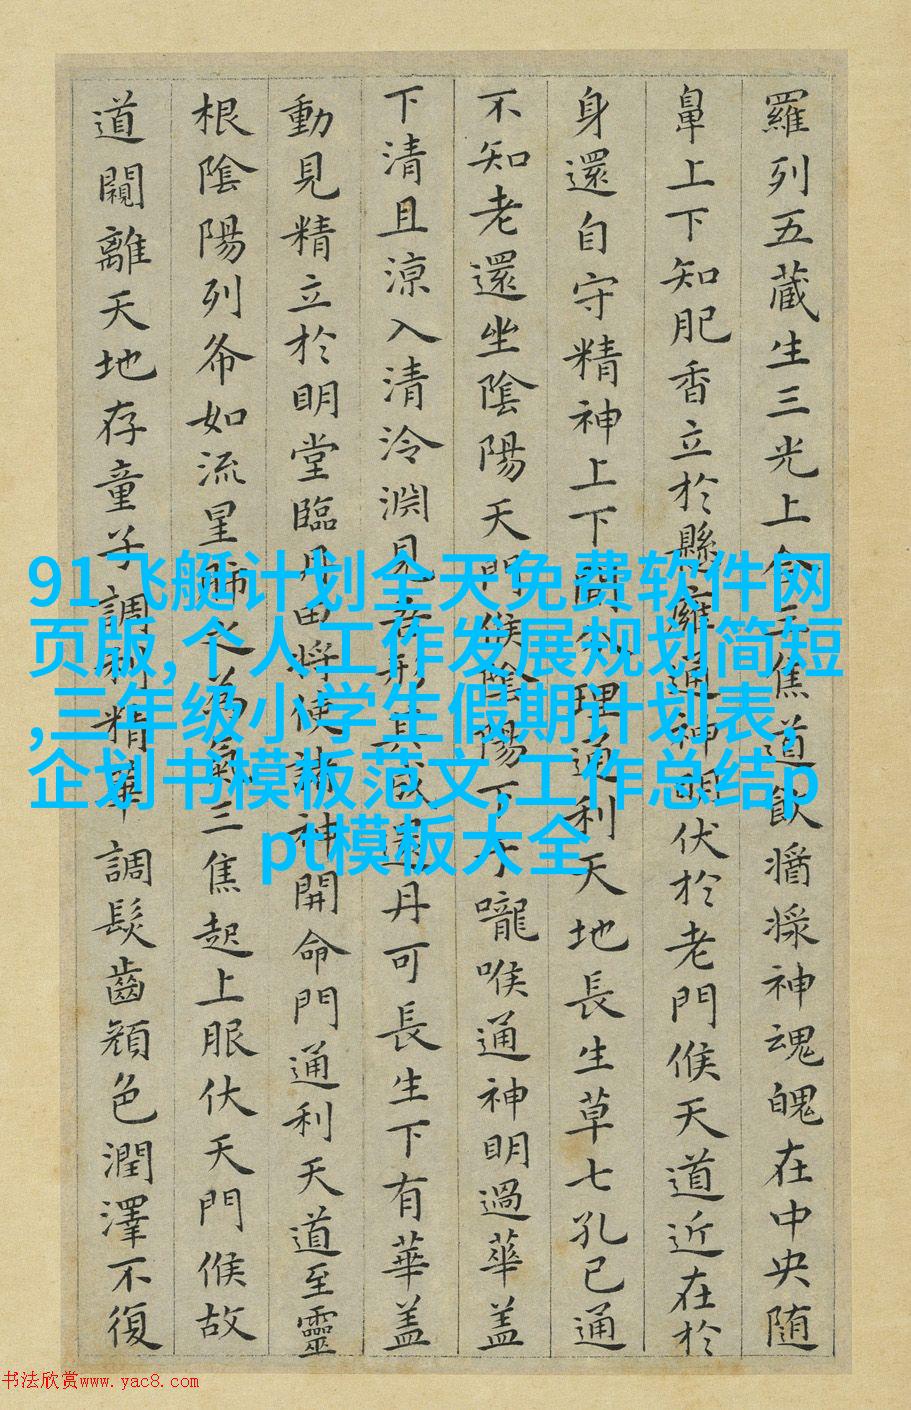 羅列五藏生三光上合三焦道飲漿神魂魄在中央随
鼻上下知肥香立於懸癰通神明伏於老門候天道近在於
身還自守精神上下開分理通利天地長生草七孔已通
不知老還坐陰陽天門候陰陽下于嚨喉通神明過華盖
下清且涼入清泠渊見吾形其成還丹可長生下有華盖
動見精立於明堂臨丹田将使諸神開命門通利天道至靈
根陰陽列布如流星肺之為氣三焦起上服伏天門候故
道闚離天地存童子調利精華調髮齒顔色潤澤不復
91飞艇计划全天免费软件网
页版,个人工作发展规划简短
,三年级小学生假期计划表,
企划书模板范文,工作总结p
pt模板大全
书法欣赏www.yac8.com